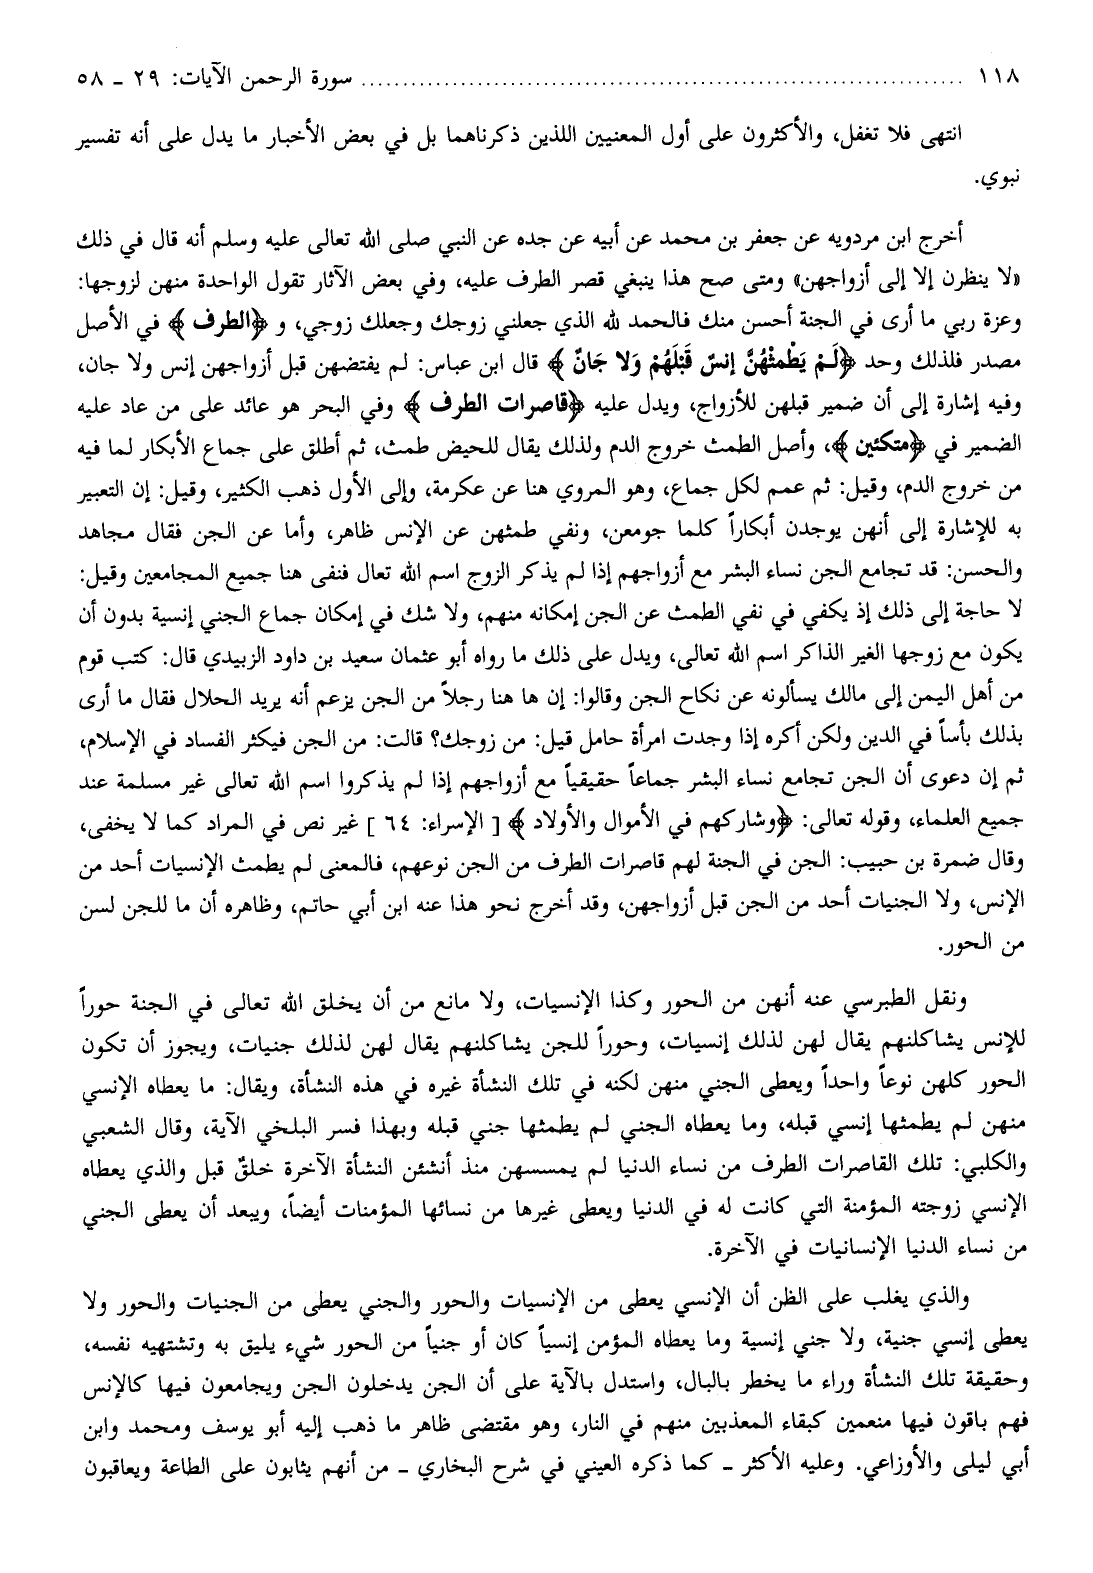 ١١٨ ........................................................................ سورة الرحمن الآيات: ٢٩ ـ ٥٨
انتهى فلا تغفل، والأكثرون على أول المعنيين اللذين ذكرناهما بل في بعض الأخبار ما يدل على أنه تفسير
نبوي.
أخرج ابن مردويه عن جعفر بن محمد عن أبيه عن جده عن النبي صلى الله تعالى عليه وسلم أنه قال في ذلك
«لا ينظرن إلا إلى أزواجهن» ومتى صح هذا ينبغي قصر الطرف عليه، وفي بعض الآثار تقول الواحدة منهن لزوجها:
وعزة ربي ما أرى في الجنة أحسن منك فالحمد لله الذي جعلني زوجك وجعلك زوجي، و ﴿الطرف﴾ في الأصل
مصدر فلذلك وحد ﴿لَمْ يَطْمثْهُنَّ إنسٌ قَبْلَهُمْ وَلا جَانٌ﴾ قال ابن عباس: لم يفتضهن قبل أزواجهن إنس ولا جان،
وفيه إشارة إلى أن ضمير قبلهن للأزواج، ويدل عليه ﴿قاصرات الطرف﴾ وفي البحر هو عائد على من عاد عليه
الضمير في ﴿متكئين﴾، وأصل الطمث خروج الدم ولذلك يقال للحيض طمث، ثم أطلق على جماع الأبكار لما فيه
من خروج الدم، وقيل: ثم عمم لكل جماع، وهو المروي هنا عن عكرمة، وإلى الأول ذهب الكثير، وقيل: إن التعبير
به للإشارة إلى أنهن يوجدن أبكاراً كلما جومعن، ونفي طمثهن عن الإنس ظاهر، وأما عن الجن فقال مجاهد
والحسن: قد تجامع الجن نساء البشر مع أزواجهم إذا لم يذكر الزوج اسم الله تعال فنفى هنا جميع المجامعين وقيل:
لا حاجة إلى ذلك إذ يكفي في نفي الطمث عن الجن إمكانه منهم، ولا شك في إمكان جماع الجني إنسية بدون أن
يكون مع زوجها الغير الذاكر اسم الله تعالى، ويدل على ذلك ما رواه أبو عثمان سعيد بن داود الزبيدي قال: كتب قوم
من أهل اليمن إلى مالك يسألونه عن نكاح الجن وقالوا: إن ها هنا رجلاً من الجن يزعم أنه يريد الحلال فقال ما أرى
بذلك بأساً في الدين ولكن أكره إذا وجدت امرأة حامل قيل: من زوجك؟ قالت: من الجن فيكثر الفساد في الإسلام،
ثم إن دعوى أن الجن تجامع نساء البشر جماعاً حقيقياً مع أزواجهم إذا لم يذكروا اسم الله تعالى غير مسلمة عند
جميع العلماء، وقوله تعالى: ﴿وشاركهم في الأموال والأولاد﴾ [ الإسراء: ٦٤ ] غير نص في المراد كما لا يخفى،
وقال ضمرة بن حبيب: الجن في الجنة لهم قاصرات الطرف من الجن نوعهم، فالمعنى لم يطمث الإنسيات أحد من
الإنس، ولا الجنيات أحد من الجن قبل أزواجهن، وقد أخرج نحو هذا عنه ابن أبي حاتم، وظاهره أن ما للجن لسن
من الحور.
ونقل الطبرسي عنه أنهن من الحور وكذا الإنسيات، ولا مانع من أن يخلق الله تعالى في الجنة حوراً
للإنس يشاكلنهم يقال لهن لذلك إنسيات، وحوراً للجن يشاكلنهم يقال لهن لذلك جنيات، ويجوز أن تكون
الحور كلهن نوعاً واحداً ويعطى الجني منهن لكنه في تلك النشأة غيره في هذه النشأة، ويقال: ما يعطاه الإنسي
منهن لم يطمثها إنسي قبله، وما يعطاه الجني لم يطمثها جني قبله وبهذا فسر البلخي الآية، وقال الشعبي
والكلبي: تلك القاصرات الطرف من نساء الدنيا لم يمسسهن منذ أنشئن النشأة الآخرة خلقٌ قبل والذي يعطاه
الإنسي زوجته المؤمنة التي كانت له في الدنيا ويعطى غيرها من نسائها المؤمنات أيضاً، ويبعد أن يعطى الجني
من نساء الدنيا الإنسانيات في الآخرة.
والذي يغلب على الظن أن الإنسي يعطى من الإنسيات والحور والجني يعطى من الجنيات والحور ولا
يعطى إنسي جنية، ولا جني إنسية وما يعطاه المؤمن إنسياً كان أو جنياً من الحور شيء يليق به وتشتهيه نفسه،
وحقيقة تلك النشأة وراء ما يخطر بالبال، واستدل بالآية على أن الجن يدخلون الجن ويجامعون فيها كالإنس
فهم باقون فيها منعمين كبقاء المعذبين منهم في النار، وهو مقتضى ظاهر ما ذهب إليه أبو يوسف ومحمد وابن
أبي ليلى والأوزاعي. وعليه الأكثر ـ كما ذكره العيني في شرح البخاري ـ من أنهم يثابون على الطاعة ويعاقبون